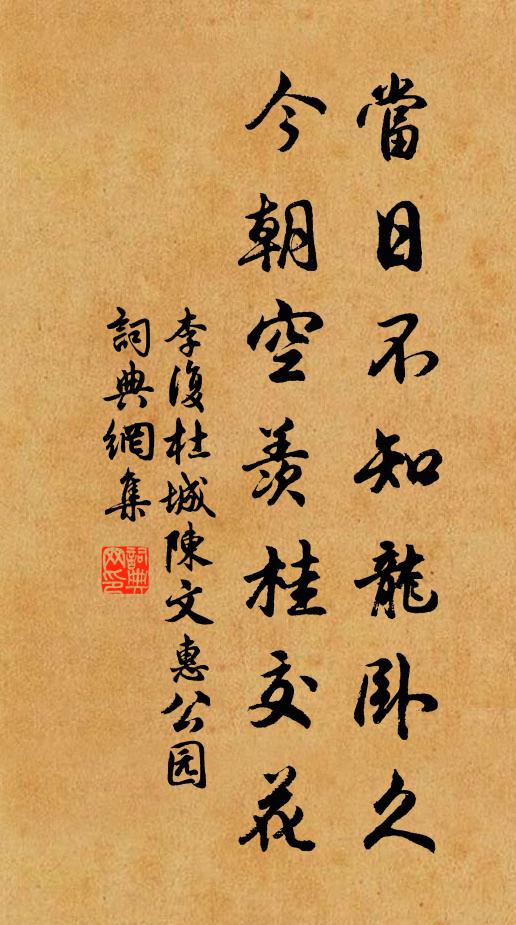 當日不知龍卧久
今朝空羨桂交花
李復杜城陳文惠公园
詞典網集
詞典网印